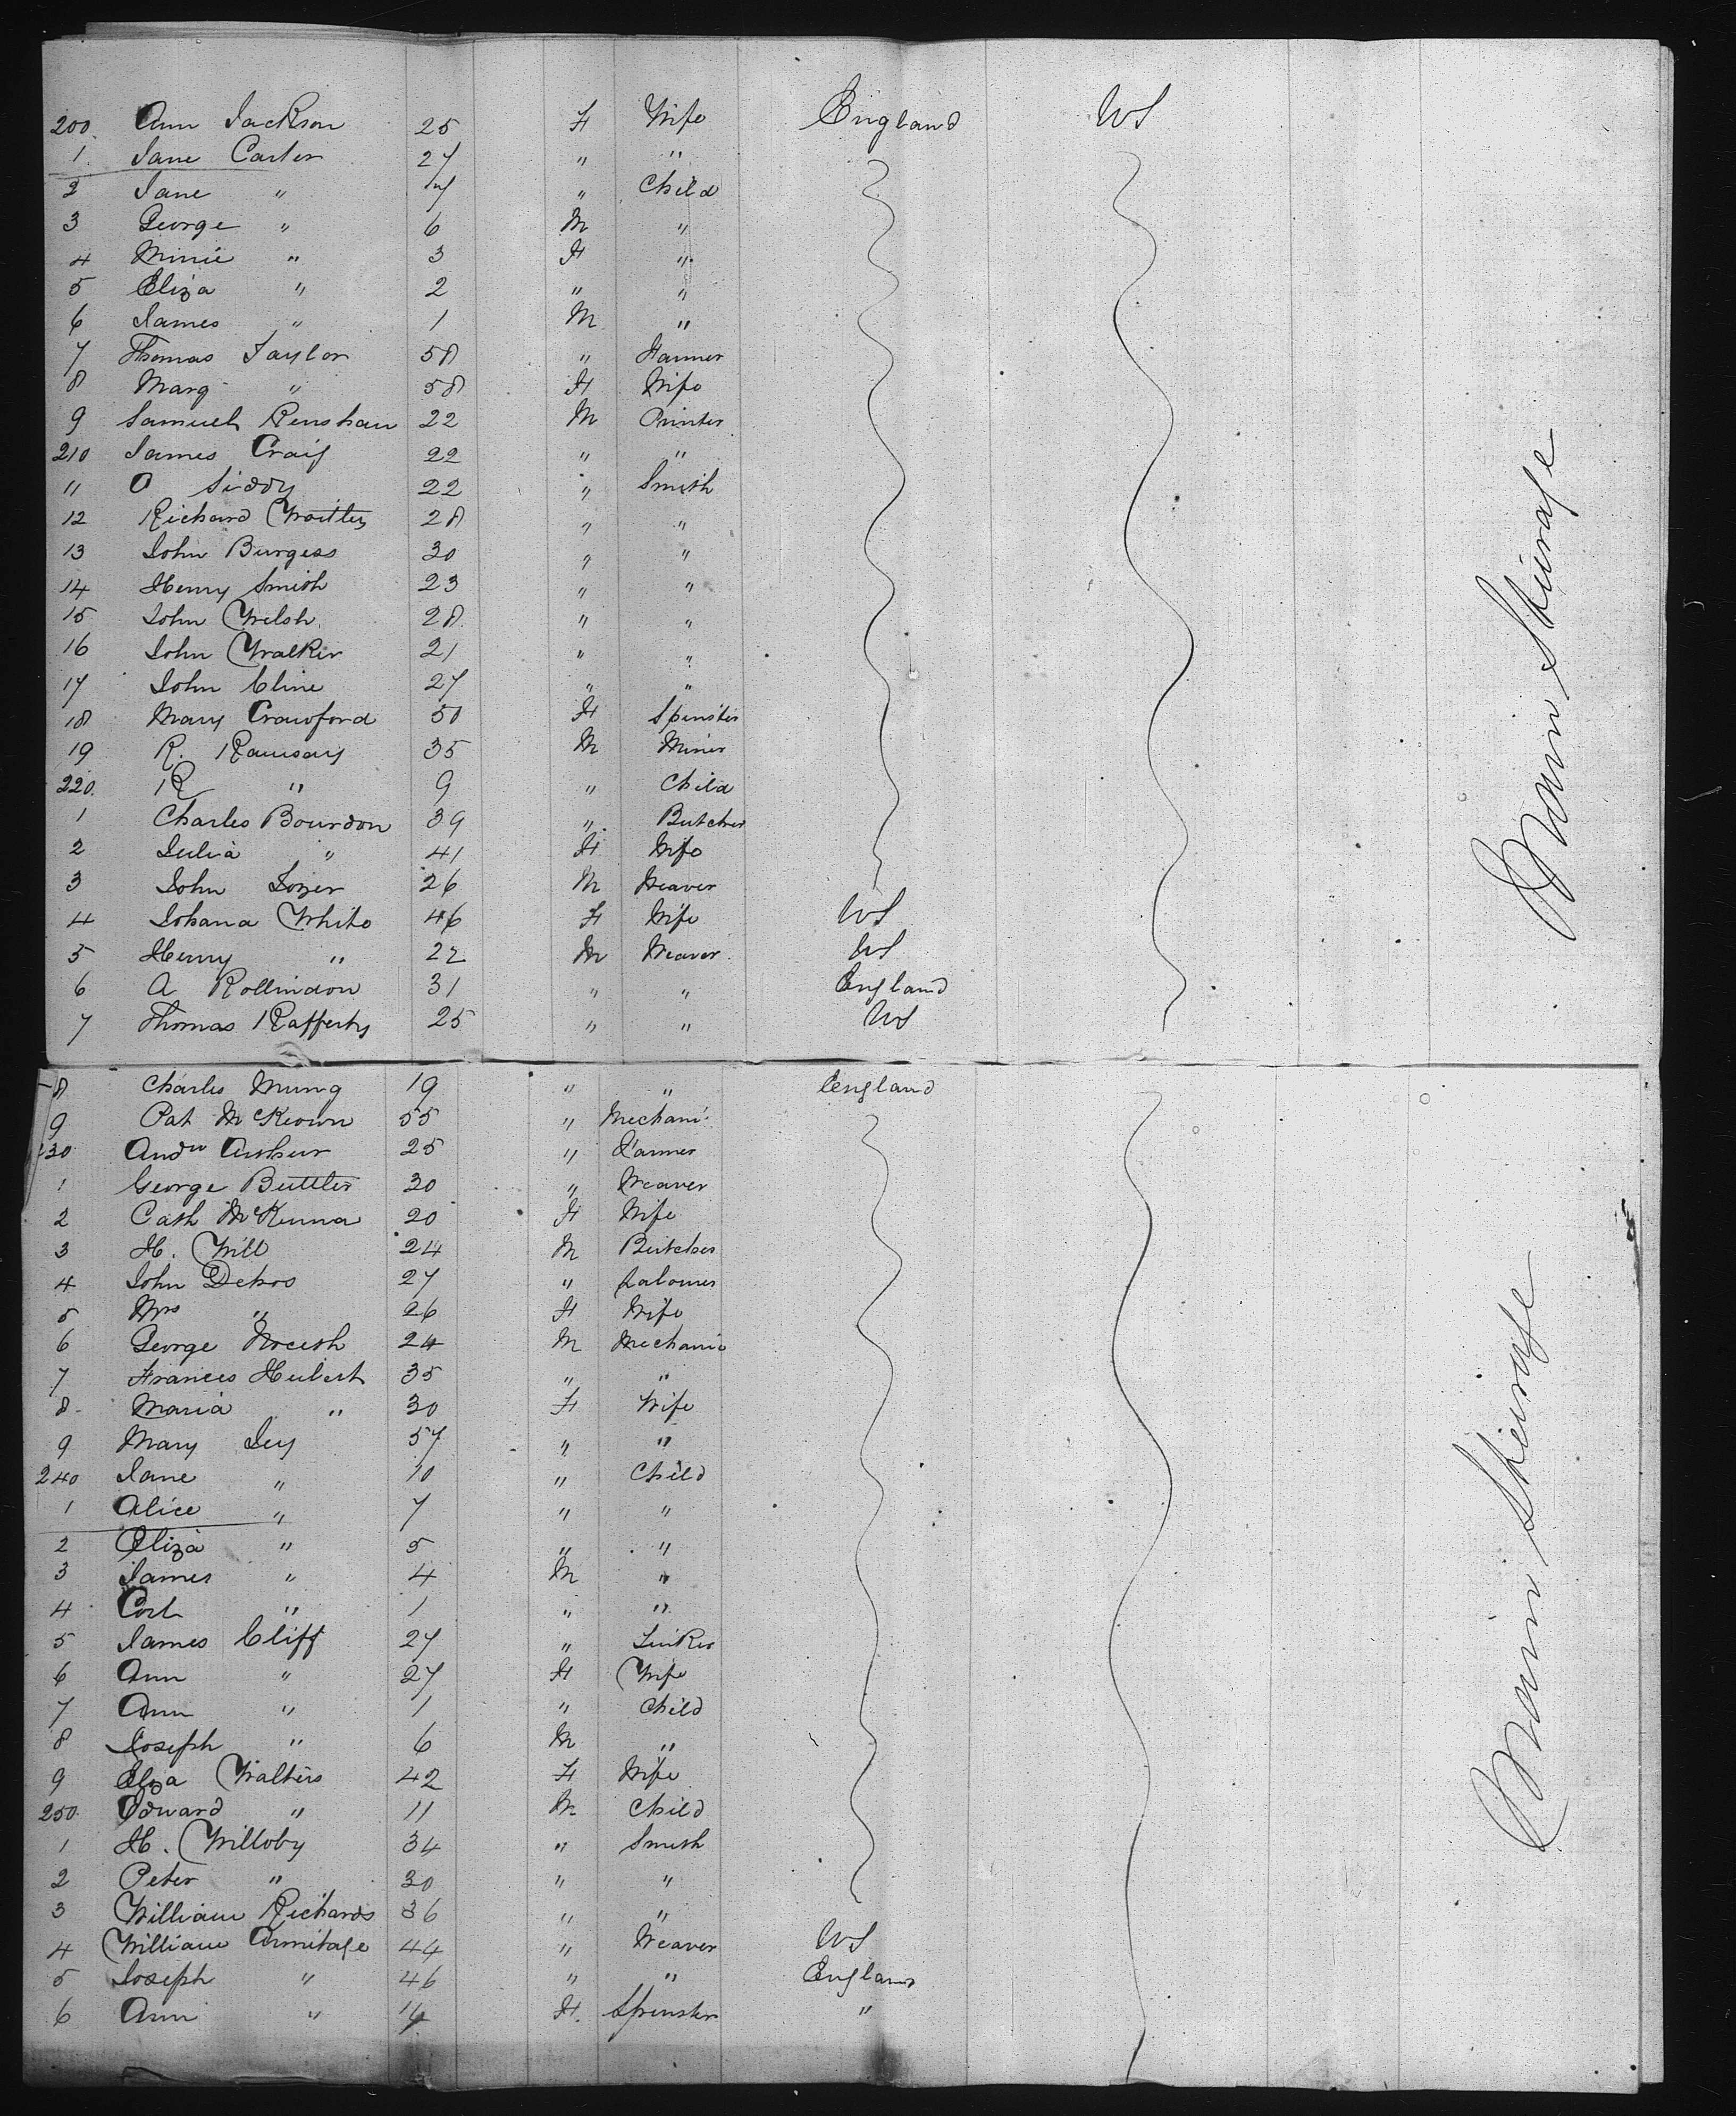 200. Ann Jackson 25 F Wife England US
1. Jane Carter 27 " "
2 Jane " 7 " Child
3 George " 6 M "
4 Minie " 3 F "
5 Eliza " 2 " "
6 James " 1 M "
7 Thomas Taylor 58 " Farmer
8 Marg " 58 F Wife
9 Samuel Renshaw 22 M Printer
210 James Craig 22 " "
11 O Siddy 22 " Smith
12 Richard 28 " "
13 John Burgess 30 " "
14 Henry Smith 23 " "
15 John Welsh 28 " "
16 John Walker 21 " "
17 John Cline 27 " "
18 Mary Crawford 50 F Spinster
19 R. Ramsay 35 M Miner
220. R " 9 " Child
1 Charles Bourdon 39 " Butcher
2 Julia " 41 F Wife
3 John Lozer 26 M Weaver
4 Johana White 46 F Wife US
5 Henry " 22 M Weaver US
6 A Rollindon 31 " " England
7 Thomas Rafferty 25 " " US
Main Steurage
8 Charles Mung 19 " " England
9 Pat McKeown 55 " Mechani
230 Andw Arthur 25 " Farmer
1 George Buttler 30 " Weaver
2 Cath McKenna 20 F Wife
3 H. Will 24 M Butcher
4 John Dekos 27 " Labourer
5 Mrs " 26 F Wife
6 George 24 M Mechanic
7 Frances Hubert 35 " "
8 Maria " 30 F Wife
9 Mary Ley 57 " "
240 Jane " 10 " Child
1 Alice " 7 " "
2 Eliza " 5 " "
3 James " 4 M "
4 " 1 " "
5 James Cliff 27 " Tinker
6 Ann " 27 F Wife
7 Ann " 1 " Child
8 Joseph " 6 M "
9 Eliza Walters 42 F Wife
250. Edward " 11 M Child
1 H. Willoby 34 " Smith
2 Peter " 30 " "
3 William Richards 36 " "
4 William Armitage 44 " Weaver US
5 Joseph " 46 " " England
6 Ann " 14 F. Spinster "
Main Steurage